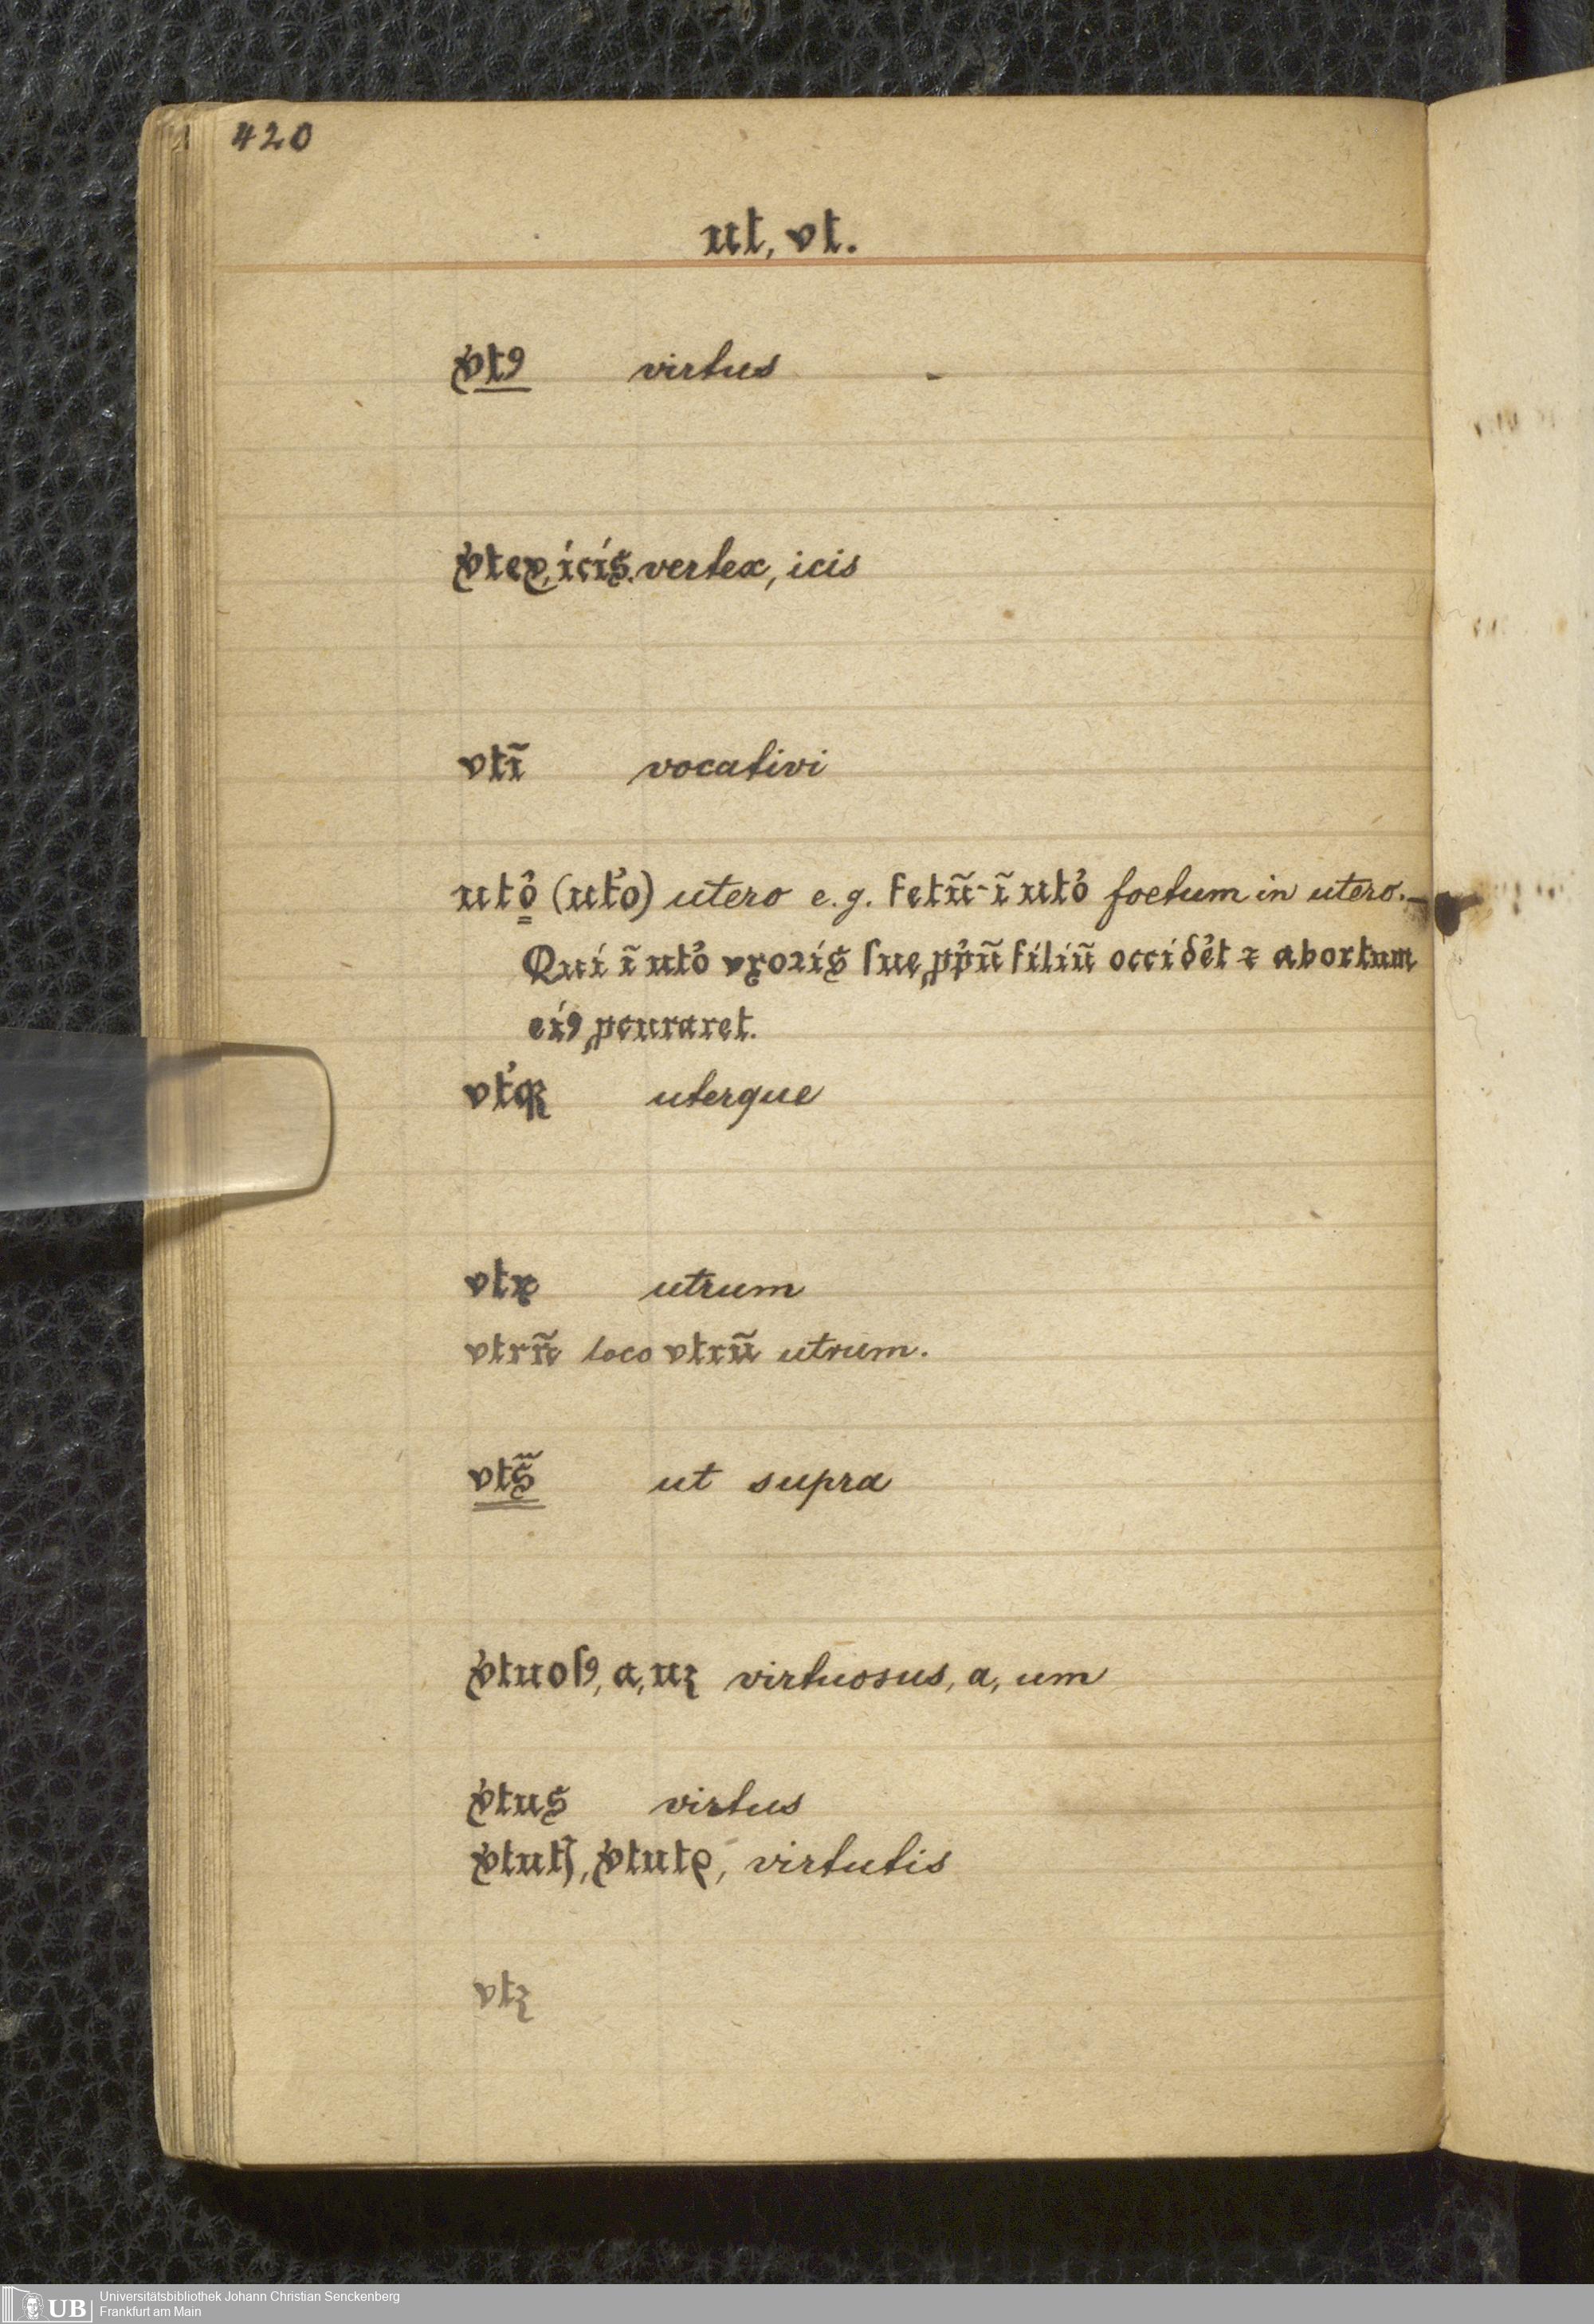 420
ut, vt.
v̾tꝯ virtus
v̾tex, icis. vertex, icis
vtĩ vocativi
uto̾ (ut̾o) utero e.g. fetũ ĩ uto̾ foetum in utero.
Qui ĩ uto̾ vxoꝛis ſue ꝓpͥũ filiũ occide̾t ⁊ abortum
eiꝯ ꝓcuraret.
vt̾qꝫ uterque
vtꝝ utrum
vtrũ loco vtrũ utrum.
vts̃ ut supra
v̾tuoſꝯ, a, uꝫ virtuosus, a, um
v̾tus virtus
v̾tutꝭ, v̾tutꝭ, virtutis
vtꝫ
UB Universitätsbibliothek Johann Christian Senckenberg
Frankfurt am Main